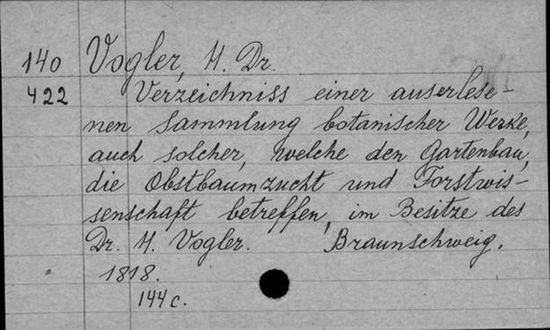 140 Vogler, H. Dr.
422 Verzeichniss einer auserlese-
nen Sammlung botanischer Werke,
auch solcher, welche den Gartenbau,
die Obstbaumzucht und Forstwis-
senschaft betreffen, im Besitze des
Dr. H. Vogler. Braunschweig,
1818.
144 c.